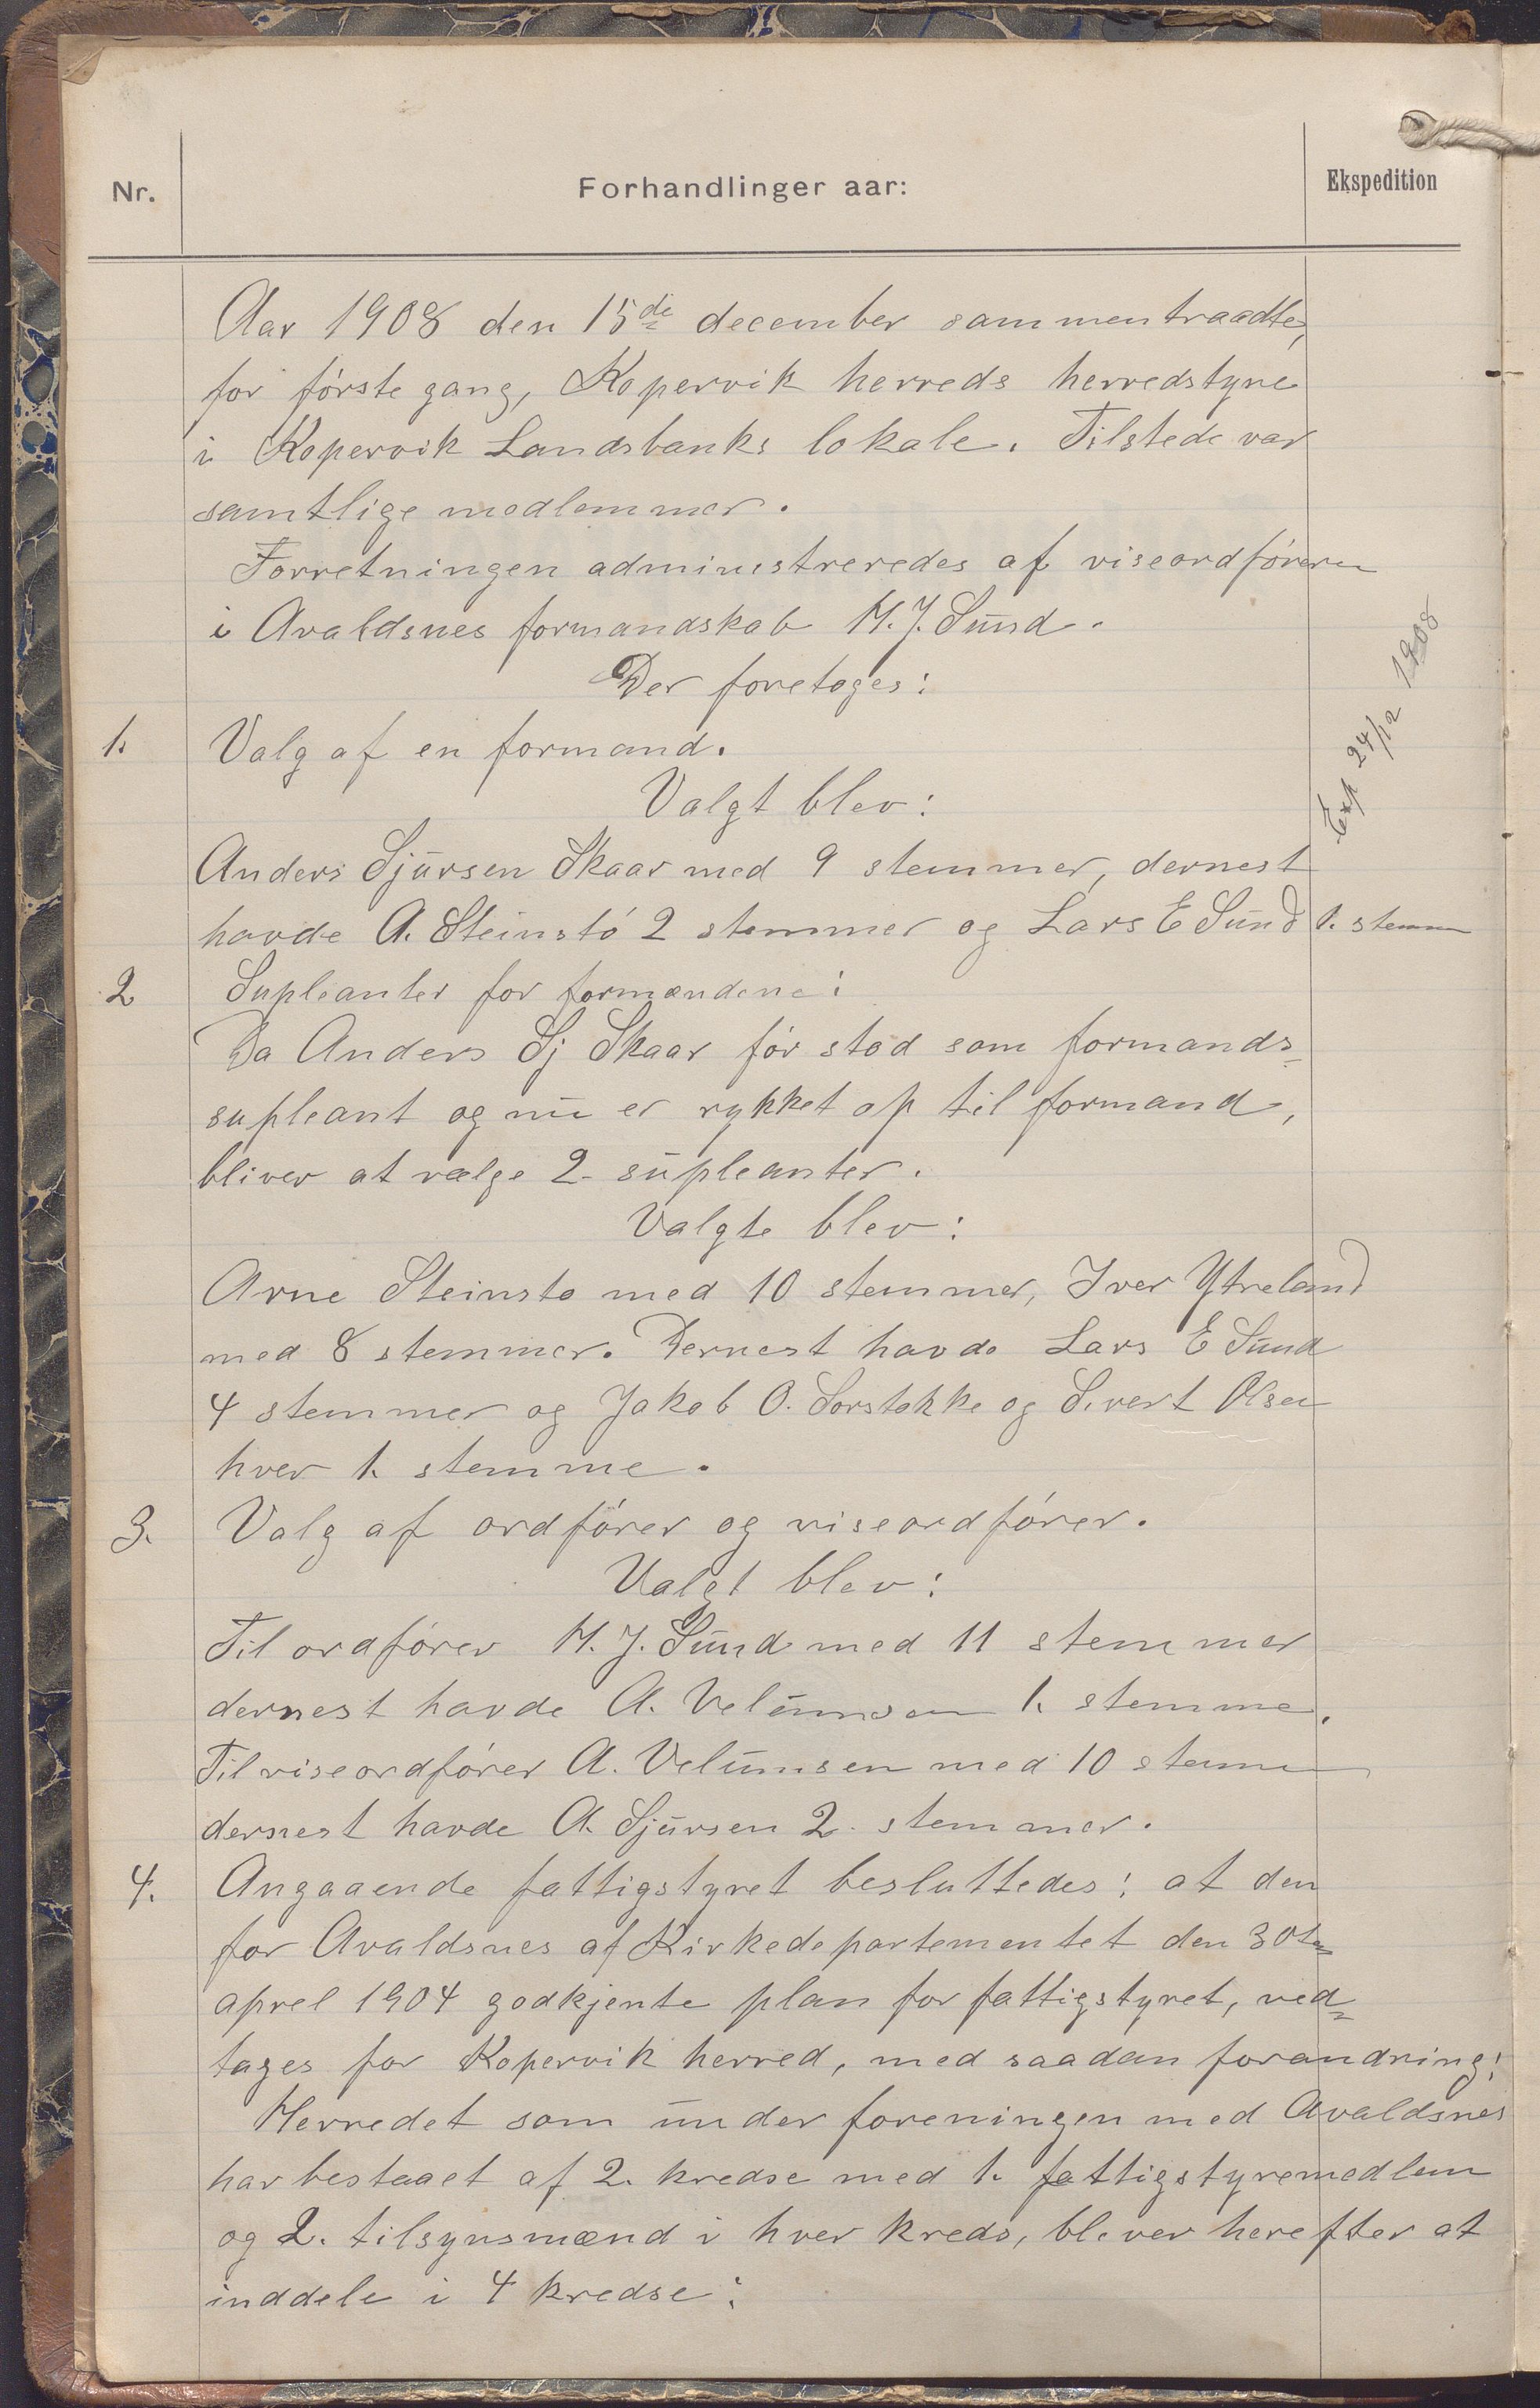 Nr.
Forhandlinger aar:
Ekspedition
Aar 1908 den 15de december sammentraadte,
for förste gang, Kopervik herreds herredstyre
i Kopervik Landsbanks lokale. Tilstede var
samtlige medlemmer.
Forretningen administreredes af viseordföreren
i Avaldsnes formandskab M. J. Sund.
Der foretoges:
1. Valg af en formand.
Exp 24/12 1908
Valgt blev:
Anders Sjursen Skaar med 9 stemmer, dernest
havde A. Steinstö 2 stemmer og Lars E Sund 1. stemme
2 Supleanter for formændene:
Da Anders Sj Skaar för stod som formands-
supleant og nu er rykket op til formand,
bliver at vælge 2 supleanter.
Valgte blev:
Arne Steinsto med 10 stemmer, Iver Ytreland
med 8 stemmer. Dernest havde Lars E Sund
4 stemmer og Jakob O. Sorstokke og Sivert Olsen
hver 1. stemme.
3. Valg af ordförer og viseordförer.
Valgt blev:
Til ordförer M. J. Sund med 11 stemmer
dernest havde A. Velumsen 1. stemme.
Til viseordförer A. Velumsen med 10 stemmer
dernest havde A. Sjursen 2 stemmer.
4. Angaaende fattigstyret besluttedes: at den
for Avaldsnes af Kirkedepartementet den 30te
aprel 1904 godkjente plan for fattigstyret, ved-
tages for Kopervik herred, med saadan forandring:
Herredet som under foreningen med Avaldsnes
har bestaaet af 2. kredse med 1. fattigstyremedlem
og 2. tilsynsmænd i hver kreds, bliver herefter at
inddele i 4 kredse: